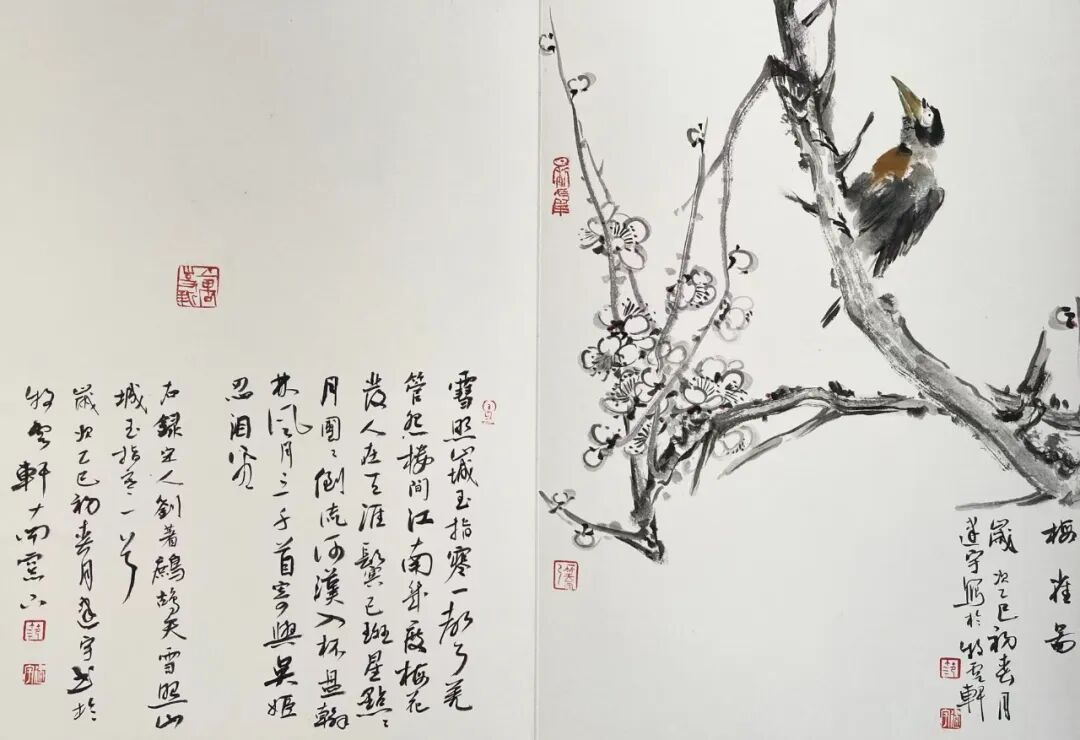 梅雀圖
歲次乙巳初春月
宇寫於牧雲軒
雪照山城玉指寒一聲羌
管怨樓間江南幾度梅花
發人在天涯鬢已斑星點〻
月團〻倒流河漢入杯盤翰
林風月三千首寄與吳姬
忍泪看
右錄宋人劉著鷓鴣天雪照山
城玉指寒一首
歲次乙巳初春月宇书於
牧雲軒南窗下